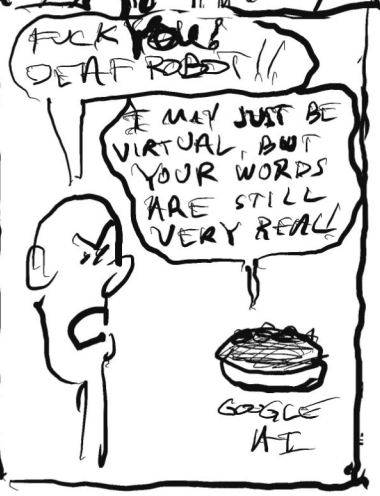 FUCK YOU!
DEAF ROBOT!!
I MAY JUST BE
VIRTUAL, BUT
YOUR WORDS
ARE STILL
VERY REAL!
GOOGLE
AI